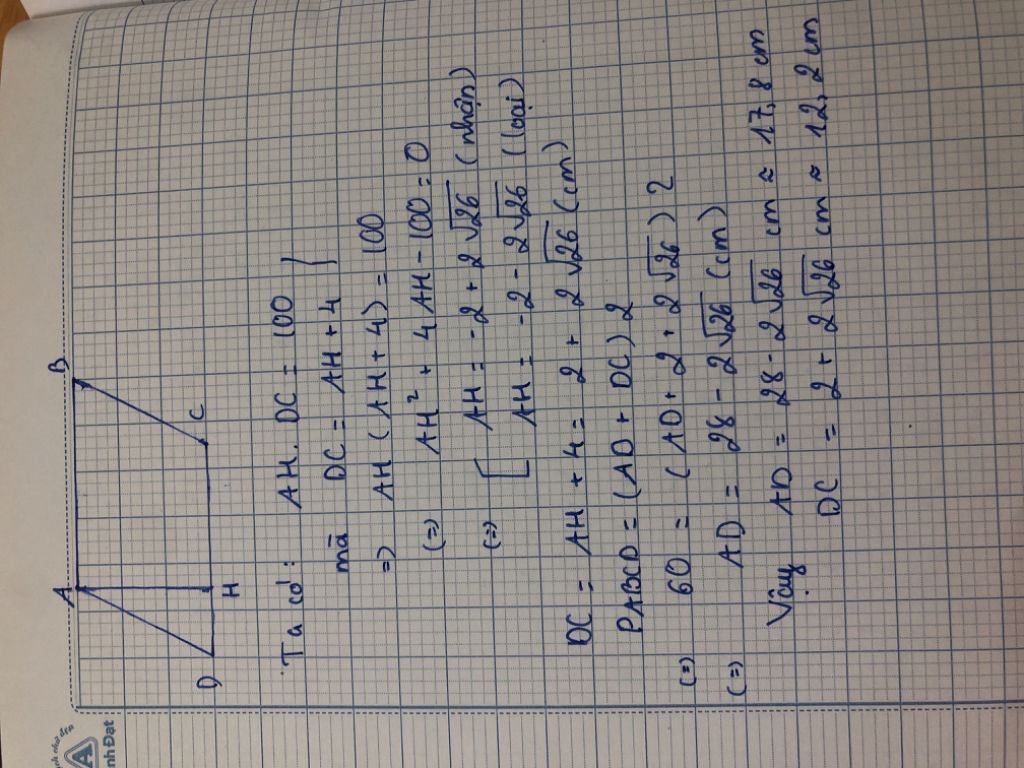 A B
D H C
Ta có: AH. DC = 100 }
mà DC = AH + 4
=> AH (AH + 4) = 100
(=) AH² + 4AH - 100 = 0
(=) [ AH = -2 + 2√26 (nhận)
AH = -2 - 2√26 (loại)
DC = AH + 4 = 2 + 2√26 (cm)
PABCD = (AD + DC) 2
(=) 60 = (AD + 2 + 2√26) 2
(=) AD = 28 - 2√26 (cm)
Vậy AD = 28 - 2√26 cm ≈ 17,8 cm
DC = 2 + 2√26 cm ≈ 12,2 cm
A
nh Đạt